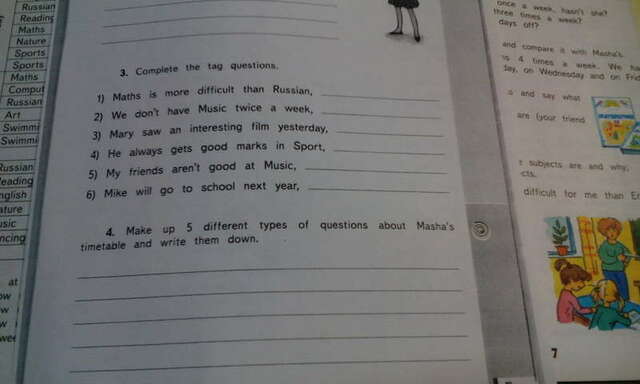 Russian
Reading
Maths
Nature
Sports
Sports
Maths
Comput
Russian
Art
Swimmi
Swimmi
Russian
eading
nglish
ature
usic
ncing
at
ow
ow
w
wee
3. Complete the tag questions.
1) Maths is more difficult than Russian,
2) We don't have Music twice a week,
3) Mary saw an interesting film yesterday,
4) He always gets good marks in Sport,
5) My friends aren't good at Music,
6) Mike will go to school next year,
4. Make up 5 different types of questions about Masha's
timetable and write them down.
once a week, hasn't she?
three times a week?
days off?
and compare it with Masha's.
4 times a week. We ha
day, on Wednesday and on Frid
and say what
are (your friend
subjects are and why;
cts.
difficult for me than En
7